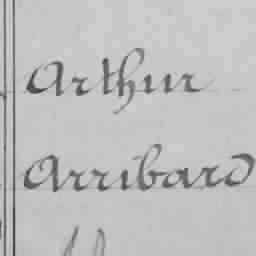 Arthur
Arribard